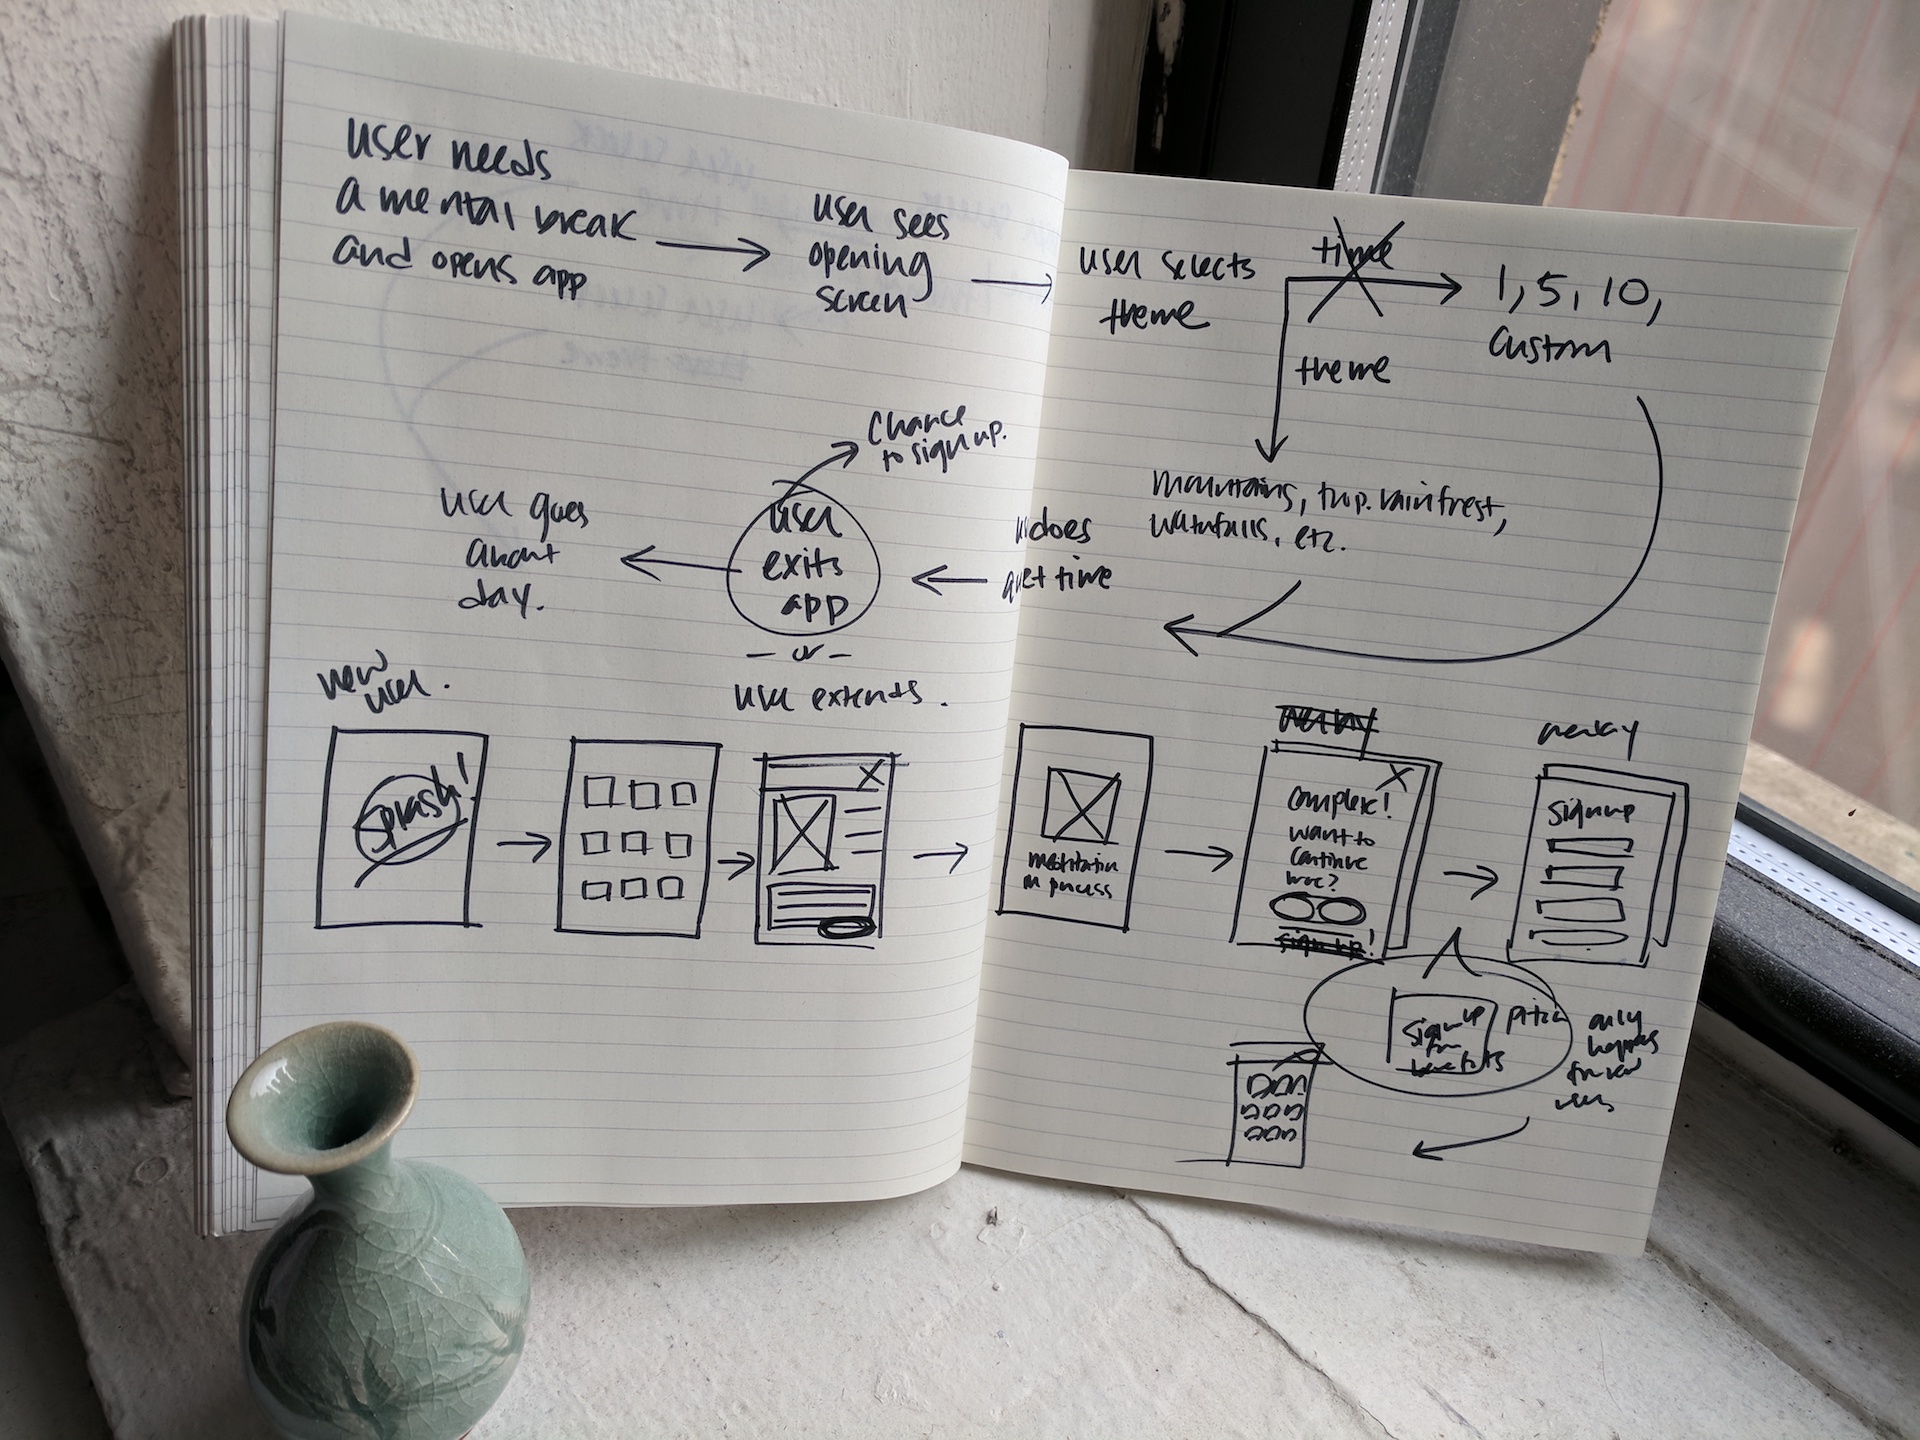 user needs
a mental break
and opens app
user sees
opening
screen
user selects
theme
time
1, 5, 10,
custom
theme
mountains, trop. rainforest,
waterfalls, etc.
does
quiet time
user
exits
app
chance
to sign up.
- or -
user extends.
user goes
about
day.
new
user.
Splash!
X
meditation
in process
X
complete!
want to
continue
more?
sign up!
overlay
Signup
Sign up
for
benefits
pitch
only
happens
for new
users